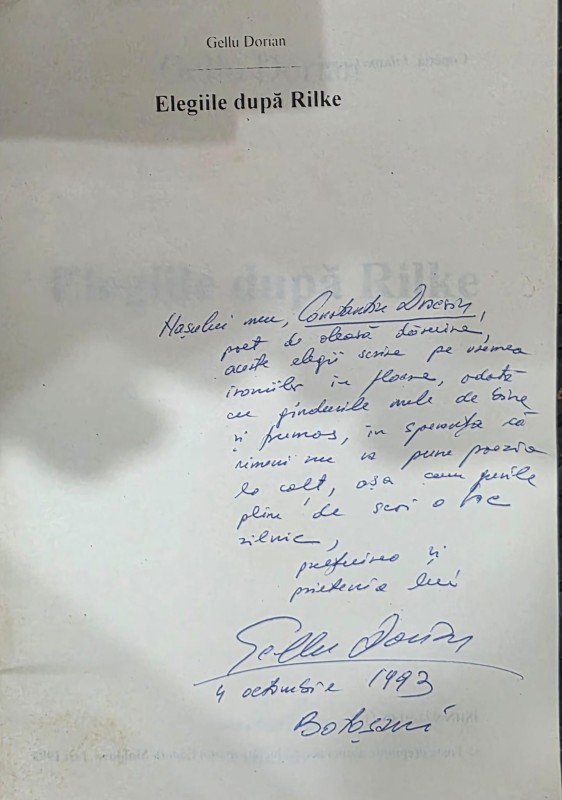 Gellu Dorian
Elegiile după Rilke
Nașului meu, Constantin Dracsin,
poet de aleasă dăruire,
aceste elegii scrise pe vremea
ironiilor în floare, odată
cu gîndurile mele de bine
și frumos, în speranța că
nimeni nu va pune poezia
la colț, așa cum
plini de scri o fac
zilnic,
prețuirea și
prietenia lui
Gellu Dorian
4 octombrie 1993
Botoșani